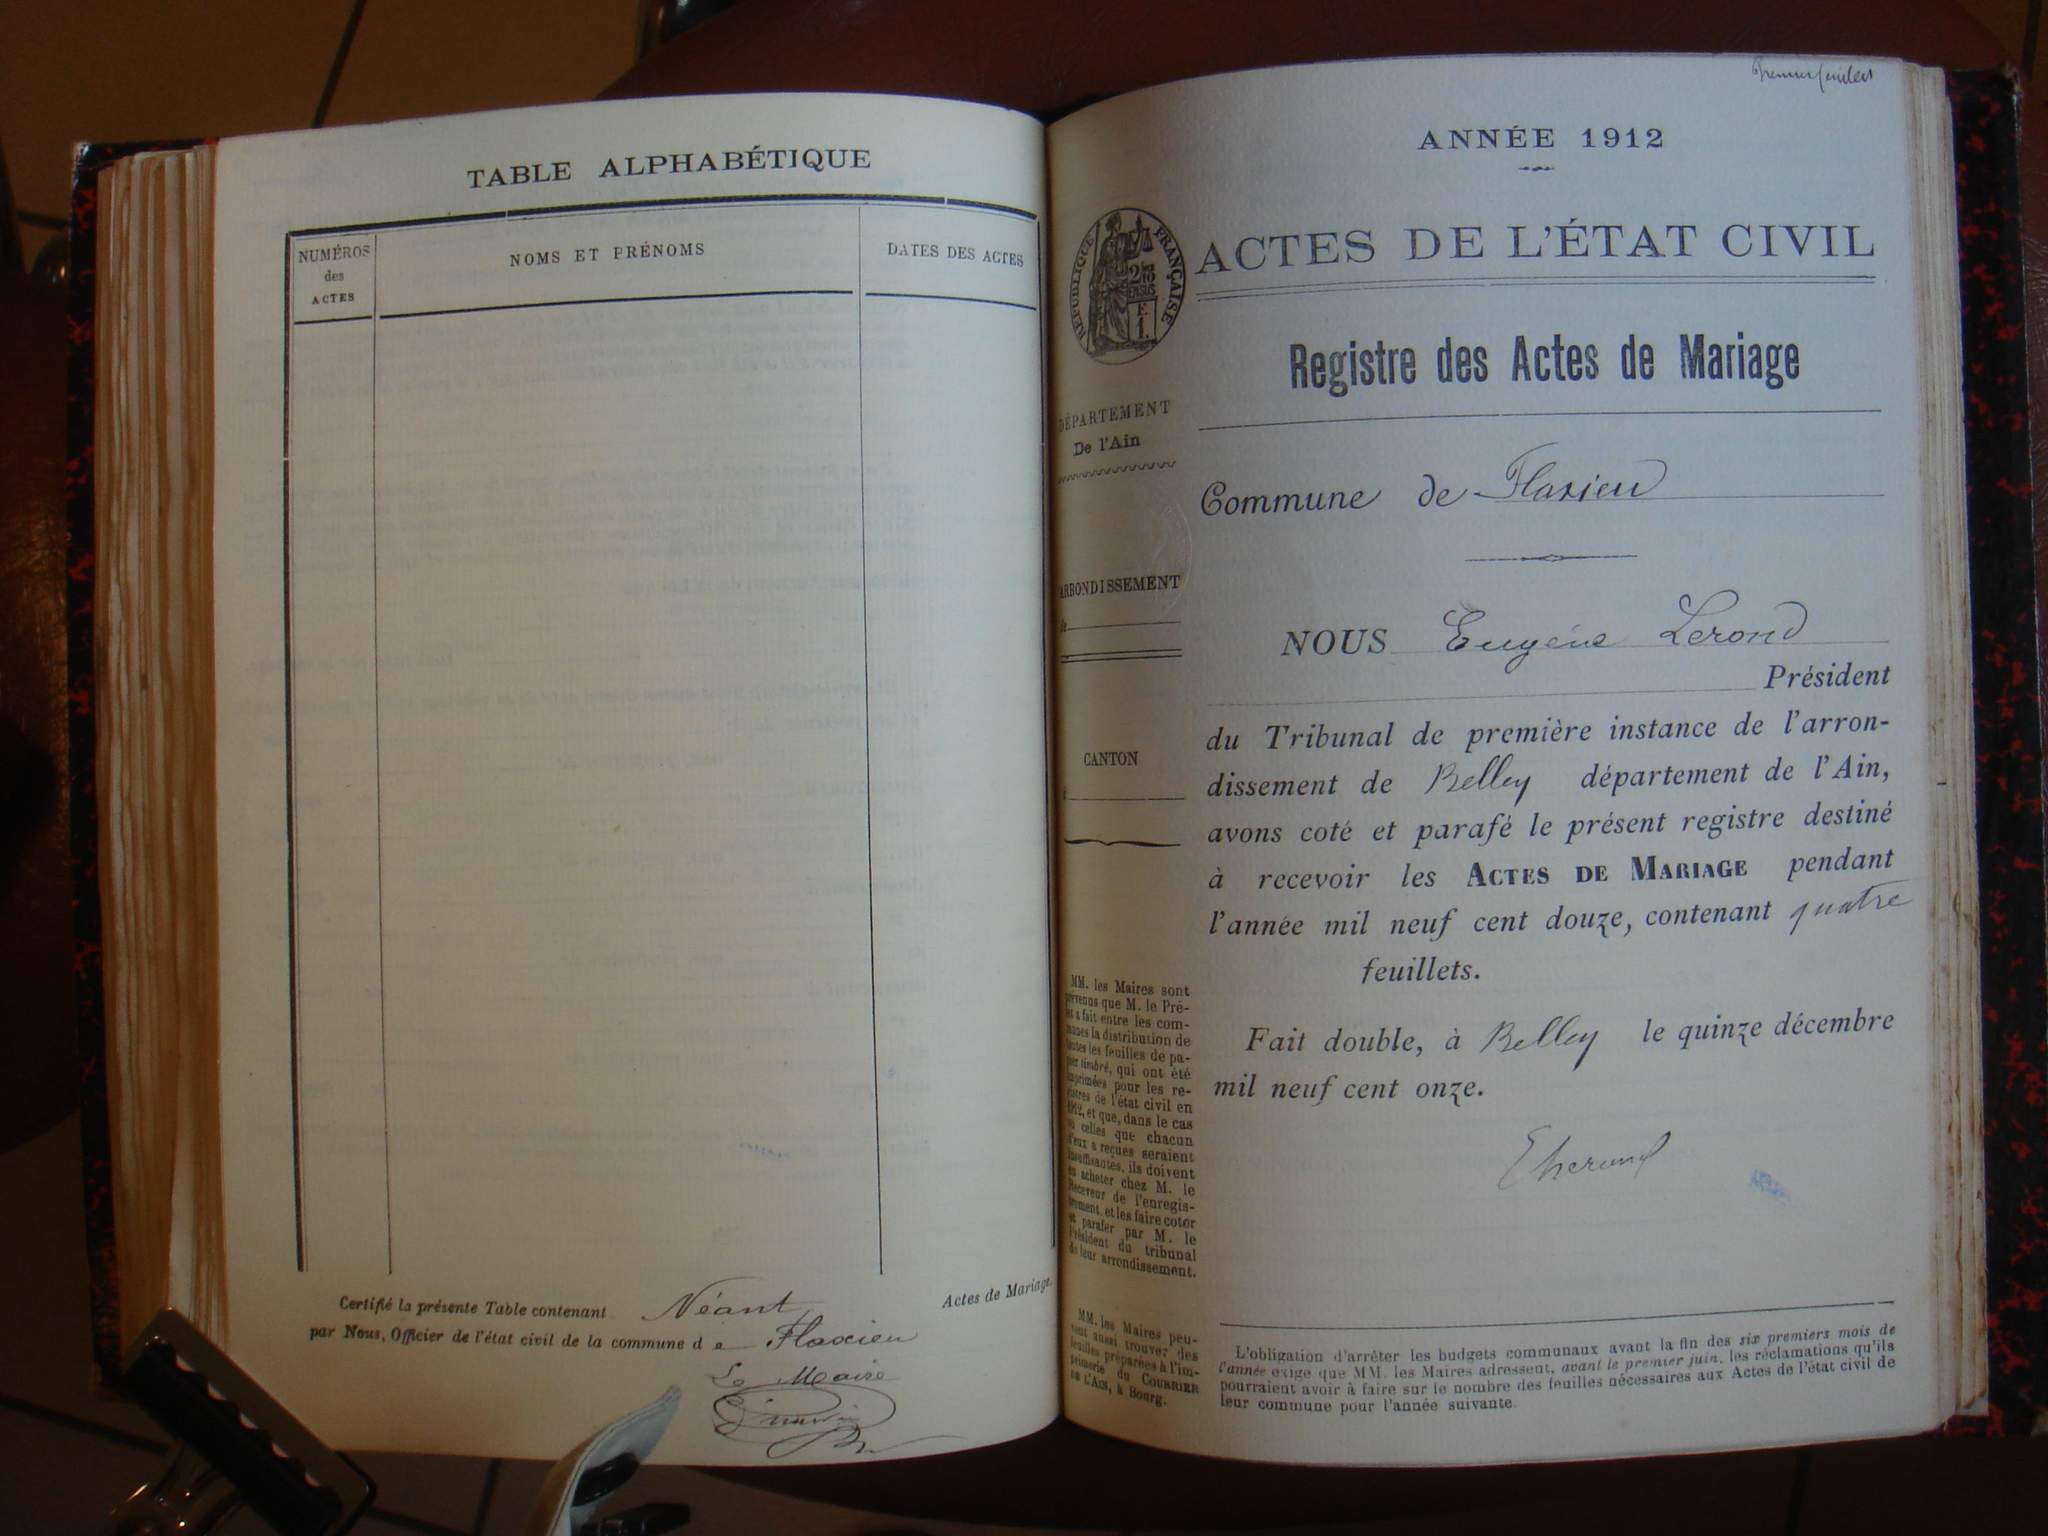 TABLE ALPHABÉTIQUE
NUMÉROS
des
ACTES
NOMS ET PRÉNOMS
DATES DES ACTES
Certifié la présente Table contenant Néant
Actes de Mariage.
par Nous, Officier de l'état civil de la commune de Flaxieu
Le Maire
Premier feuillet
ANNÉE 1912
ACTES DE L'ÉTAT CIVIL
RÉPUBLIQUE FRANÇAISE
Registre des Actes de Mariage
DÉPARTEMENT
De l'Ain
Commune de Flaxieu
ARRONDISSEMENT
de
CANTON
NOUS Eugène Lerond
Président
du Tribunal de première instance de l'arron-
dissement de Belley département de l'Ain,
avons coté et parafé le présent registre destiné
à recevoir les ACTES DE MARIAGE pendant
l'année mil neuf cent douze, contenant quatre
feuillets.
Fait double, à Belley le quinze décembre
mil neuf cent onze.
MM. les Maires sont
prévenus que M. le Pré-
fet a fait entre les com-
munes la distribution de
toutes les feuilles de pa-
pier timbré, qui ont été
imprimées pour les re-
gistres de l'état civil en
1912, et que, dans le cas
où celles que chacun
d'eux a reçues seraient
insuffisantes, ils doivent
en acheter chez M. le
Receveur de l'enregis-
trement, et les faire coter
et parafer par M. le
Président du tribunal
de leur arrondissement.
MM. les Maires peu-
vent aussi trouver des
feuilles préparées à l'im-
primerie du COURRIER
DE L'AIN, à Bourg.
L'obligation d'arrêter les budgets communaux avant la fin des six premiers mois de
l'année exige que MM. les Maires adressent, avant le premier juin, les réclamations qu'ils
pourraient avoir à faire sur le nombre des feuilles nécessaires aux Actes de l'état civil de
leur commune pour l'année suivante.